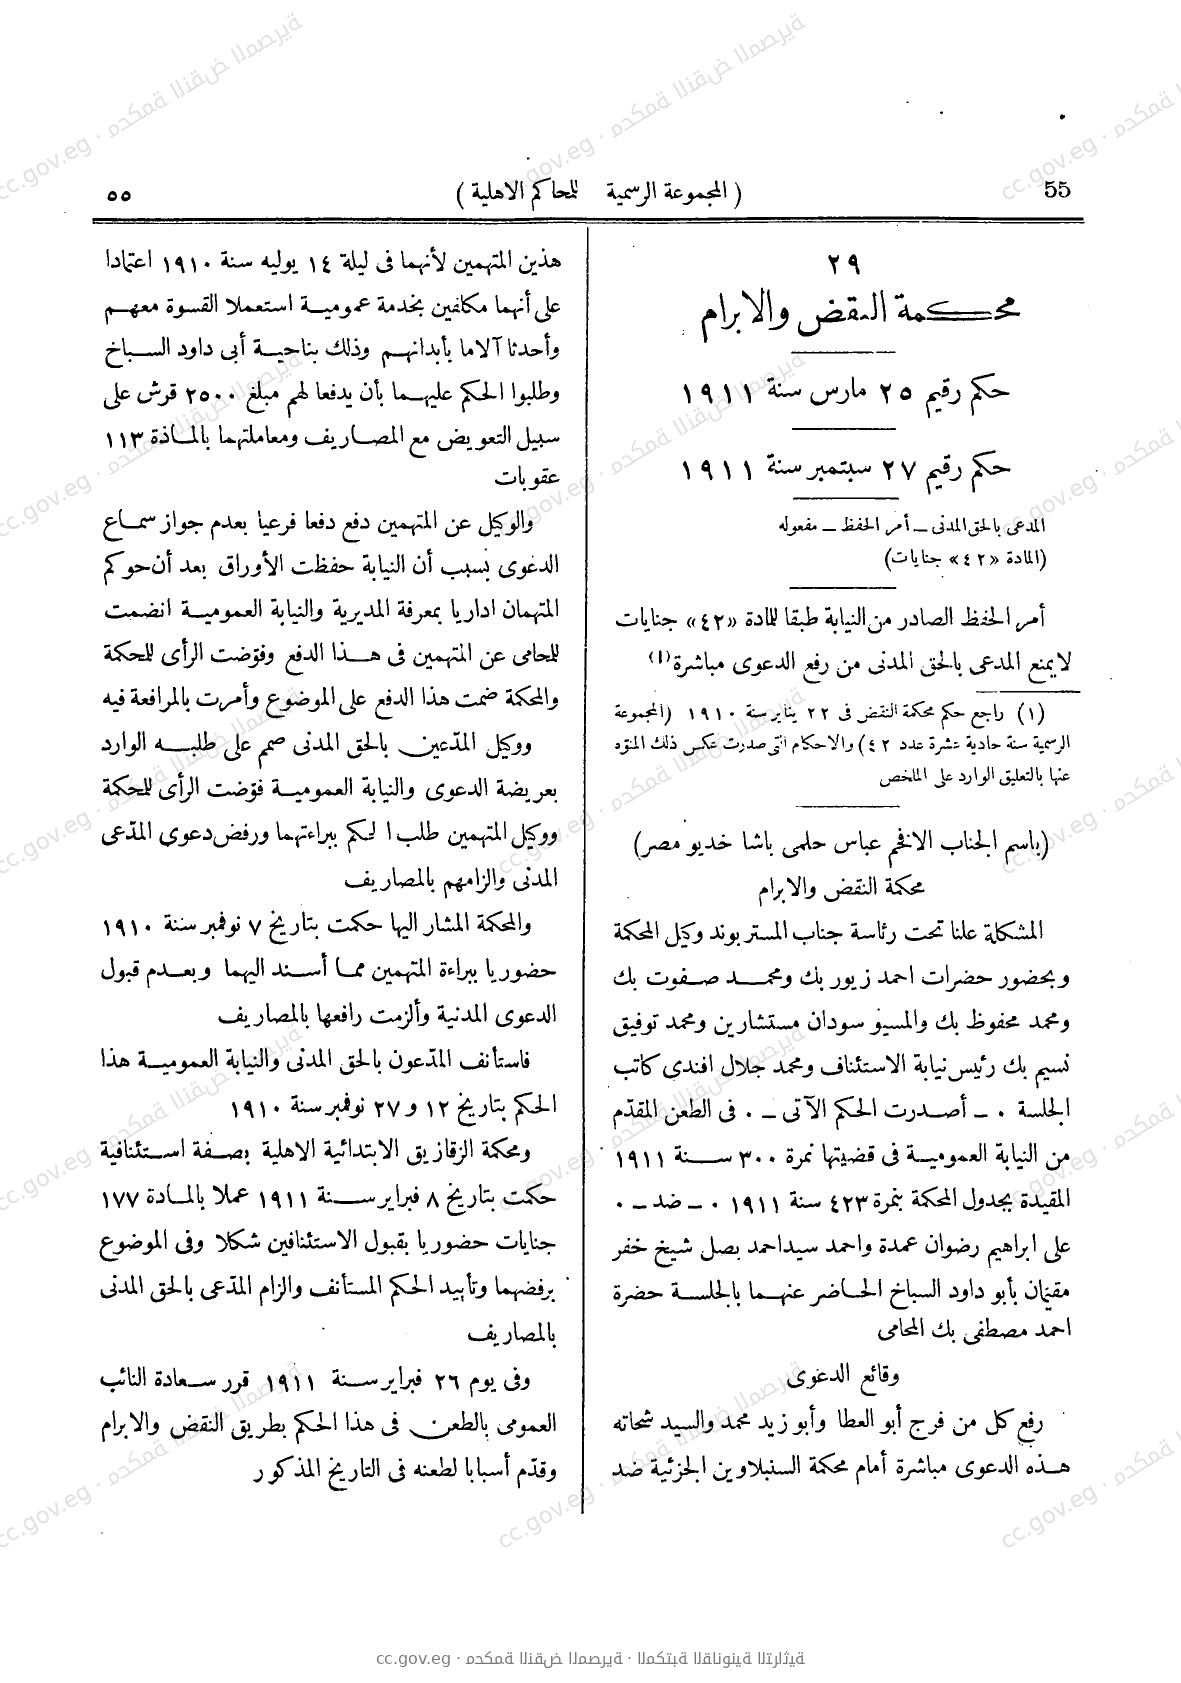 55
( المجموعة الرسمية للمحاكم الاهلية )
٥٥
٢٩
محكمة النقض والابرام
حكم رقيم ٢٥ مارس سنة ١٩١١
حكم رقيم ٢٧ سبتمبر سنة ١٩١١
المدعى بالحق المدنى ــ أمر الحفظ ــ مفعوله
(المادة «٤٢» جنايات)
أمر الحفظ الصادر من النيابة طبقا للمادة «٤٢» جنايات
لا يمنع المدعى بالحق المدنى من رفع الدعوى مباشرة(١)
(١) راجع حكم محكمة النقض فى ٢٢ يناير سنة ١٩١٠ (المجموعة
الرسمية سنة حادية عشرة عدد ٤٢) والاحكام التى صدرت عكس ذلك المنوّه
عنها بالتعليق الوارد على الملخص
(باسم الجناب الافخم عباس حلمى باشا خديو مصر)
محكمة النقض والابرام
المشكلة علنا تحت رئاسة جناب المستر بوند وكيل المحكمة
وبحضور حضرات احمد زيور بك ومحمد صفوت بك
ومحمد محفوظ بك والمسيو سودان مستشارين ومحمد توفيق
نسيم بك رئيس نيابة الاستئناف ومحمد جلال افندى كاتب
الجلسة ٠ ــ أصدرت الحكم الآتى ــ ٠ فى الطعن المقدّم
من النيابة العمومية فى قضيتها نمرة ٣٠٠ سنة ١٩١١
المقيدة بجدول المحكمة بنمرة ٤٢٣ سنة ١٩١١ ٠ ــ ضد ــ ٠
على ابراهيم رضوان عمدة واحمد سيداحمد بصل شيخ خفر
مقيمان بأبو داود السباخ الحاضر عنهما بالجلسة حضرة
احمد مصطفى بك المحامى
وقائع الدعوى
رفع كل من فرج أبو العطا وأبو زيد محمد والسيد شحاته
هذه الدعوى مباشرة أمام محكمة السنبلاوين الجزئية ضد
هذين المتهمين لأنهما فى ليلة ١٤ يوليه سنة ١٩١٠ اعتمادا
على أنهما مكلفين بخدمة عمومية استعملا القسوة معهم
وأحدثا آلاما بأبدانهم وذلك بناحية أبى داود السباخ
وطلبوا الحكم عليهما بأن يدفعا لهم مبلغ ٢٥٠٠ قرش على
سبيل التعويض مع المصاريف ومعاملتهما بالمادّة ١١٣
عقوبات
والوكيل عن المتهمين دفع دفعا فرعيا بعدم جواز سماع
الدعوى بسبب أن النيابة حفظت الأوراق بعد أن حوكم
المتهمان اداريا بمعرفة المديرية والنيابة العمومية انضمت
للمحامى عن المتهمين فى هذا الدفع وفوّضت الرأى للمحكمة
والمحكمة ضمت هذا الدفع على الموضوع وأمرت بالمرافعة فيه
ووكيل المدّعين بالحق المدنى صمم على طلبه الوارد
بعريضة الدعوى والنيابة العمومية فوّضت الرأى للمحكمة
ووكيل المتهمين طلب الحكم ببراءتهما ورفض دعوى المدّعى
المدنى والزامهم بالمصاريف
والمحكمة المشار اليها حكمت بتاريخ ٧ نوفمبر سنة ١٩١٠
حضوريا ببراءة المتهمين مما أسند اليهما وبعدم قبول
الدعوى المدنية وألزمت رافعها بالمصاريف
فاستأنف المدّعون بالحق المدنى والنيابة العمومية هذا
الحكم بتاريخ ١٢ و ٢٧ نوفمبر سنة ١٩١٠
ومحكمة الزقازيق الابتدائية الاهلية بصفة استئنافية
حكمت بتاريخ ٨ فبراير سنة ١٩١١ عملا بالمادة ١٧٧
جنايات حضوريا بقبول الاستئنافين شكلا وفى الموضوع
برفضهما وتأييد الحكم المستأنف والزام المدّعى بالحق المدنى
بالمصاريف
وفى يوم ٢٦ فبراير سنة ١٩١١ قرر سعادة النائب
العمومى بالطعن فى هذا الحكم بطريق النقض والابرام
وقدّم أسبابا لطعنه فى التاريخ المذكور
cc.gov.eg · محكمة النقض المصرية · المكتبة القانونية التراثية